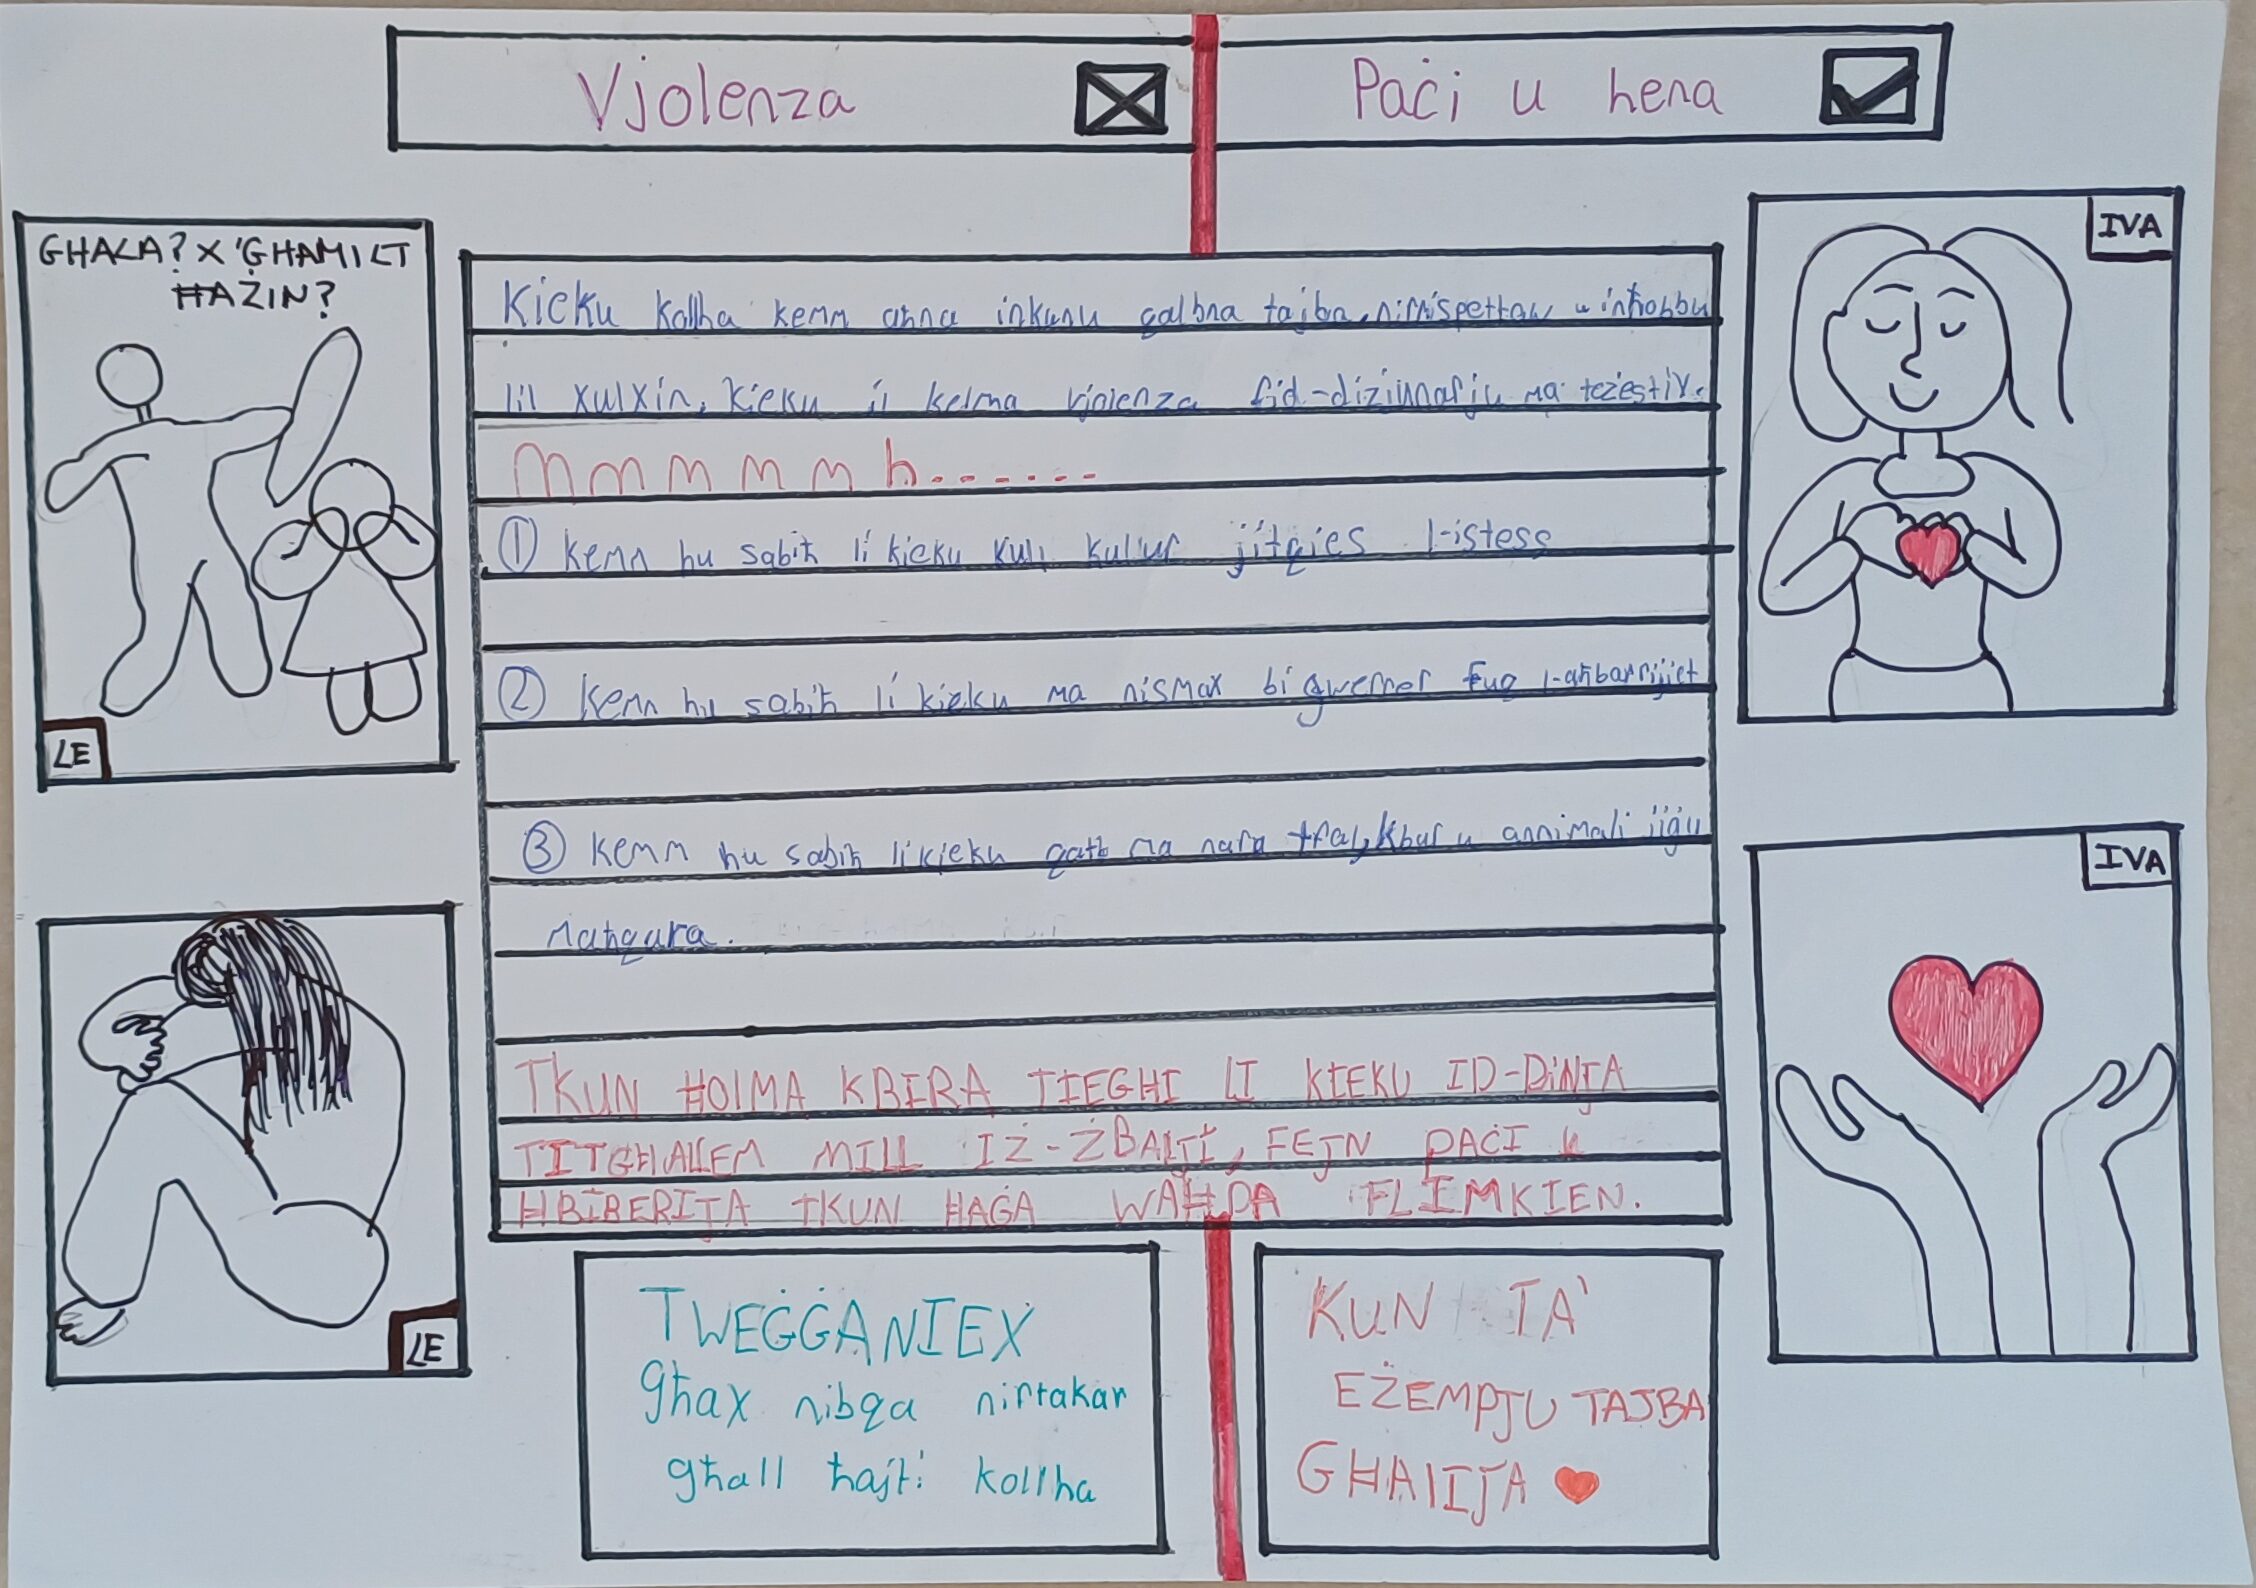 Vjolenza
Paċi u hena
GĦALA? X'GĦAMILT
ĦAŻIN?
LE
IVA
Kieku kollha kemm aħna inkunu qalbna tajba, nirrispettaw u inħobbu
lil xulxin, kieku il kelma vjolenza fid-dizzjunarju ma teżestix.
Mmmmmh......
① Kemm hu sabiħ li kieku kull kulur jitqies l-istess
② Kemm hu sabiħ li kieku ma nismax bi gwerrer fuq l-aħbarrijiet
③ Kemm hu sabiħ li kieku qatt ma nara tfal, kbar u annimali jiġu
maħqura.
TKUN ĦOLMA KBIRA TIEGĦI LI KIEKU ID-DINJA
TITGĦALLEM MILL IŻ-ŻBALJI, FEJN PAĊI u
ĦBIBERIJA TKUN ĦAĠA WAĦDA FLIMKIEN.
LE
IVA
TWEĠĠANIEX
għax nibqa niftakar
għall ħajti kollha
KUN TA'
EŻEMPJU TAJBA
GĦALIJA